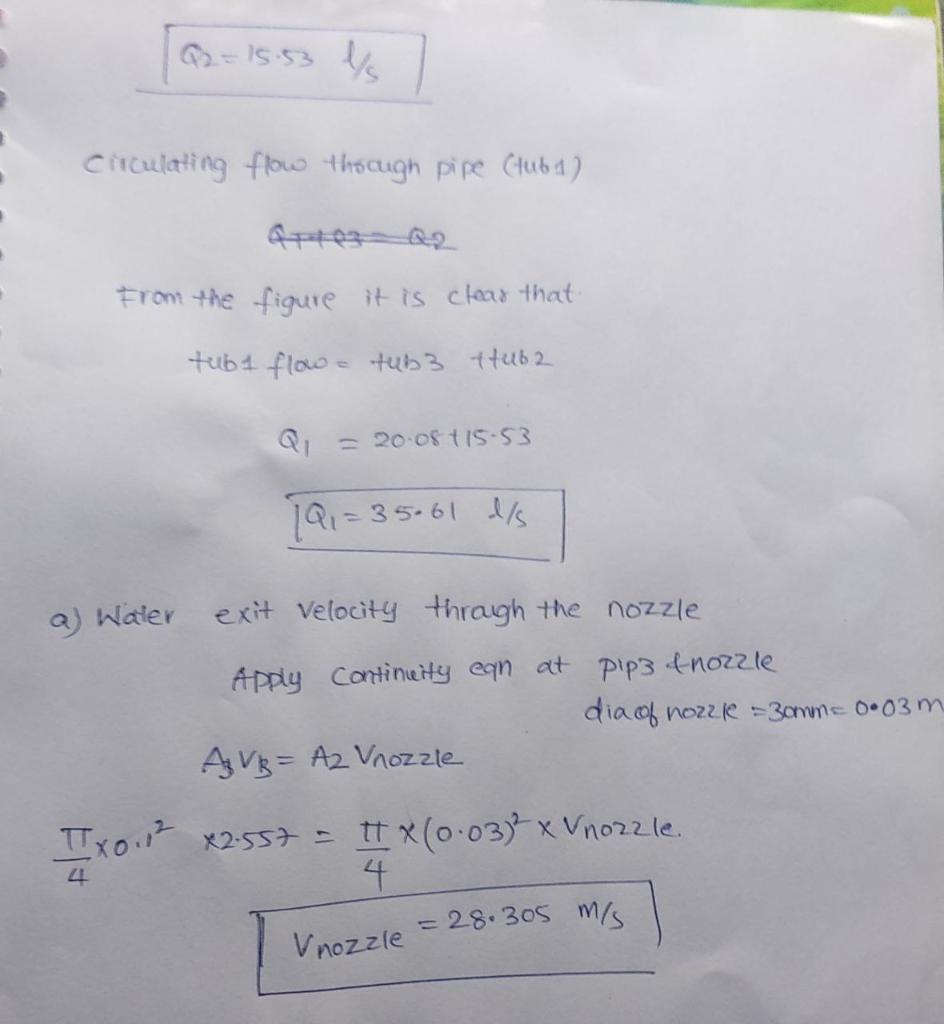 Q2 = 15.53 l/s
Circulating flow through pipe (tub1)
Q1+Q3 = Q2
From the figure it is clear that
tub1 flow = tub3 + tub2
Q1 = 20.08 + 15.53
Q1 = 35.61 l/s
a) Water exit velocity through the nozzle
Apply Continuity eqn at pip3 & nozzle
dia of nozzle = 30mm = 0.03 m
A3 V3 = A2 Vnozzle
π/4 x 0.1² x 2.557 = π/4 x (0.03)² x Vnozzle.
Vnozzle = 28.305 m/s